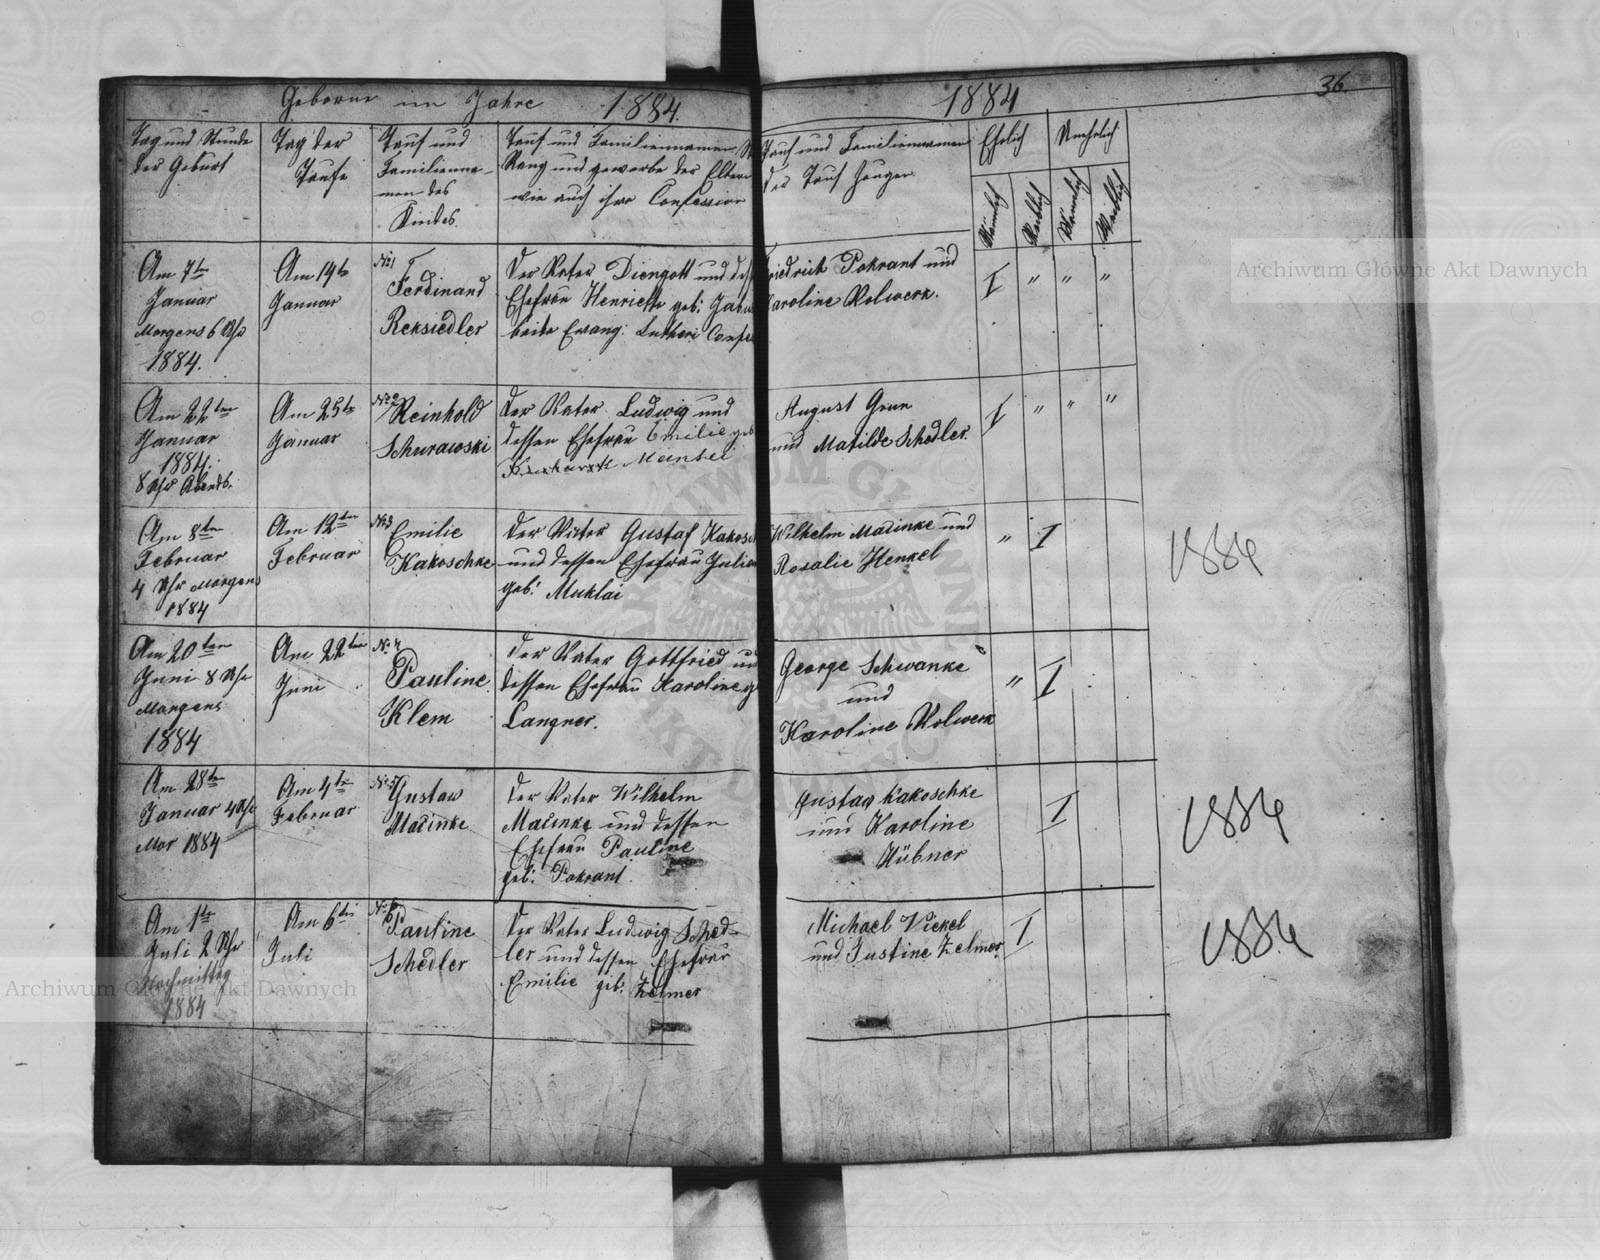 Geborne im Jahre 1884.
1884
36.
Tag und Stunde
der Geburt
Tag der
Taufe
Tauf und
Familienna-
men des
Kindes.
Tauf und Familiennamen
Rang und gewerbe der Eltern
wie auch ihre Confession
Tauf und Familiennamen
der Tauf Zeugen.
Ehelich
Unehelich
Männlich
Weiblich
Männlich
Weiblich
Am 7te
Januar
Morgens 6 Uhr
1884.
Am 14te
Januar
No 1
Ferdinand
Reksiedler
Der Vater Diengott und des
Ehefrau Henriette geb:
beide Evang: Lutheri Confe
Friedrich Pokrant und
Karoline Wolwerk.
I " " "
Am 22ten
Januar
1884.
8 Uhr Abends.
Am 25te
Januar
No 2
Reinhold
Schurawski
Der Vater Ludwig und
dessen Ehefrau Emilie geb
Mantei
August Grun
und Matilde Schedler.
I " " "
Am 8ten
Februar
4 Uhr Morgens
1884
Am 12ten
Februar
No 3
Emilie
Kakoschke
Der Vater Gustaf Kakosch
und dessen Ehefrau Julia
geb: Muklai
Wilhelm Matinke und
Rosalie Henkel
" I
1884
Am 20ten
Juni 8 Uhr
Morgens
1884
Am 22ten
Juni
No 4
Pauline
Klem
Der Vater Gottfried un
dessen Ehefrau Karoline g
Langner.
George Schwanke
und
Karoline Wolwerk
" I
Am 28te
Januar 4 Uhr
Mor 1884
Am 4te
Februar
No 5
Gustaw
Matinke
Der Vater Wilhelm
Matinke und dessen
Ehefrau Pauline
geb: Pokrant
Gustaw Kakoschke
und Karoline
Hübner
I
1884
Am 1te
Juli 2 Uhr
Nachmittag
1884
Am 6te
Juli
No 6
Pauline
Schedler
Der Vater Ludwig Sched-
ler und dessen Ehefrau
Emilie geb: Zelmer
Michael Vickel
und Justine Zelmer
I
1884
Archiwum Główne Akt Dawnych
Archiwum Główne Akt Dawnych